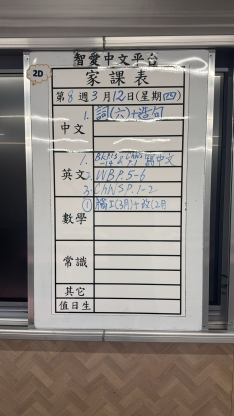 智愛中文平台
2D
家課表
第8週3月12日(星期四)
中文
1. 詞(六)+造句
英文
2. WBP.5-6
3. ChWSP.1-2
數學
① 腦工(3月)+改(2月
常識
其它
值日生